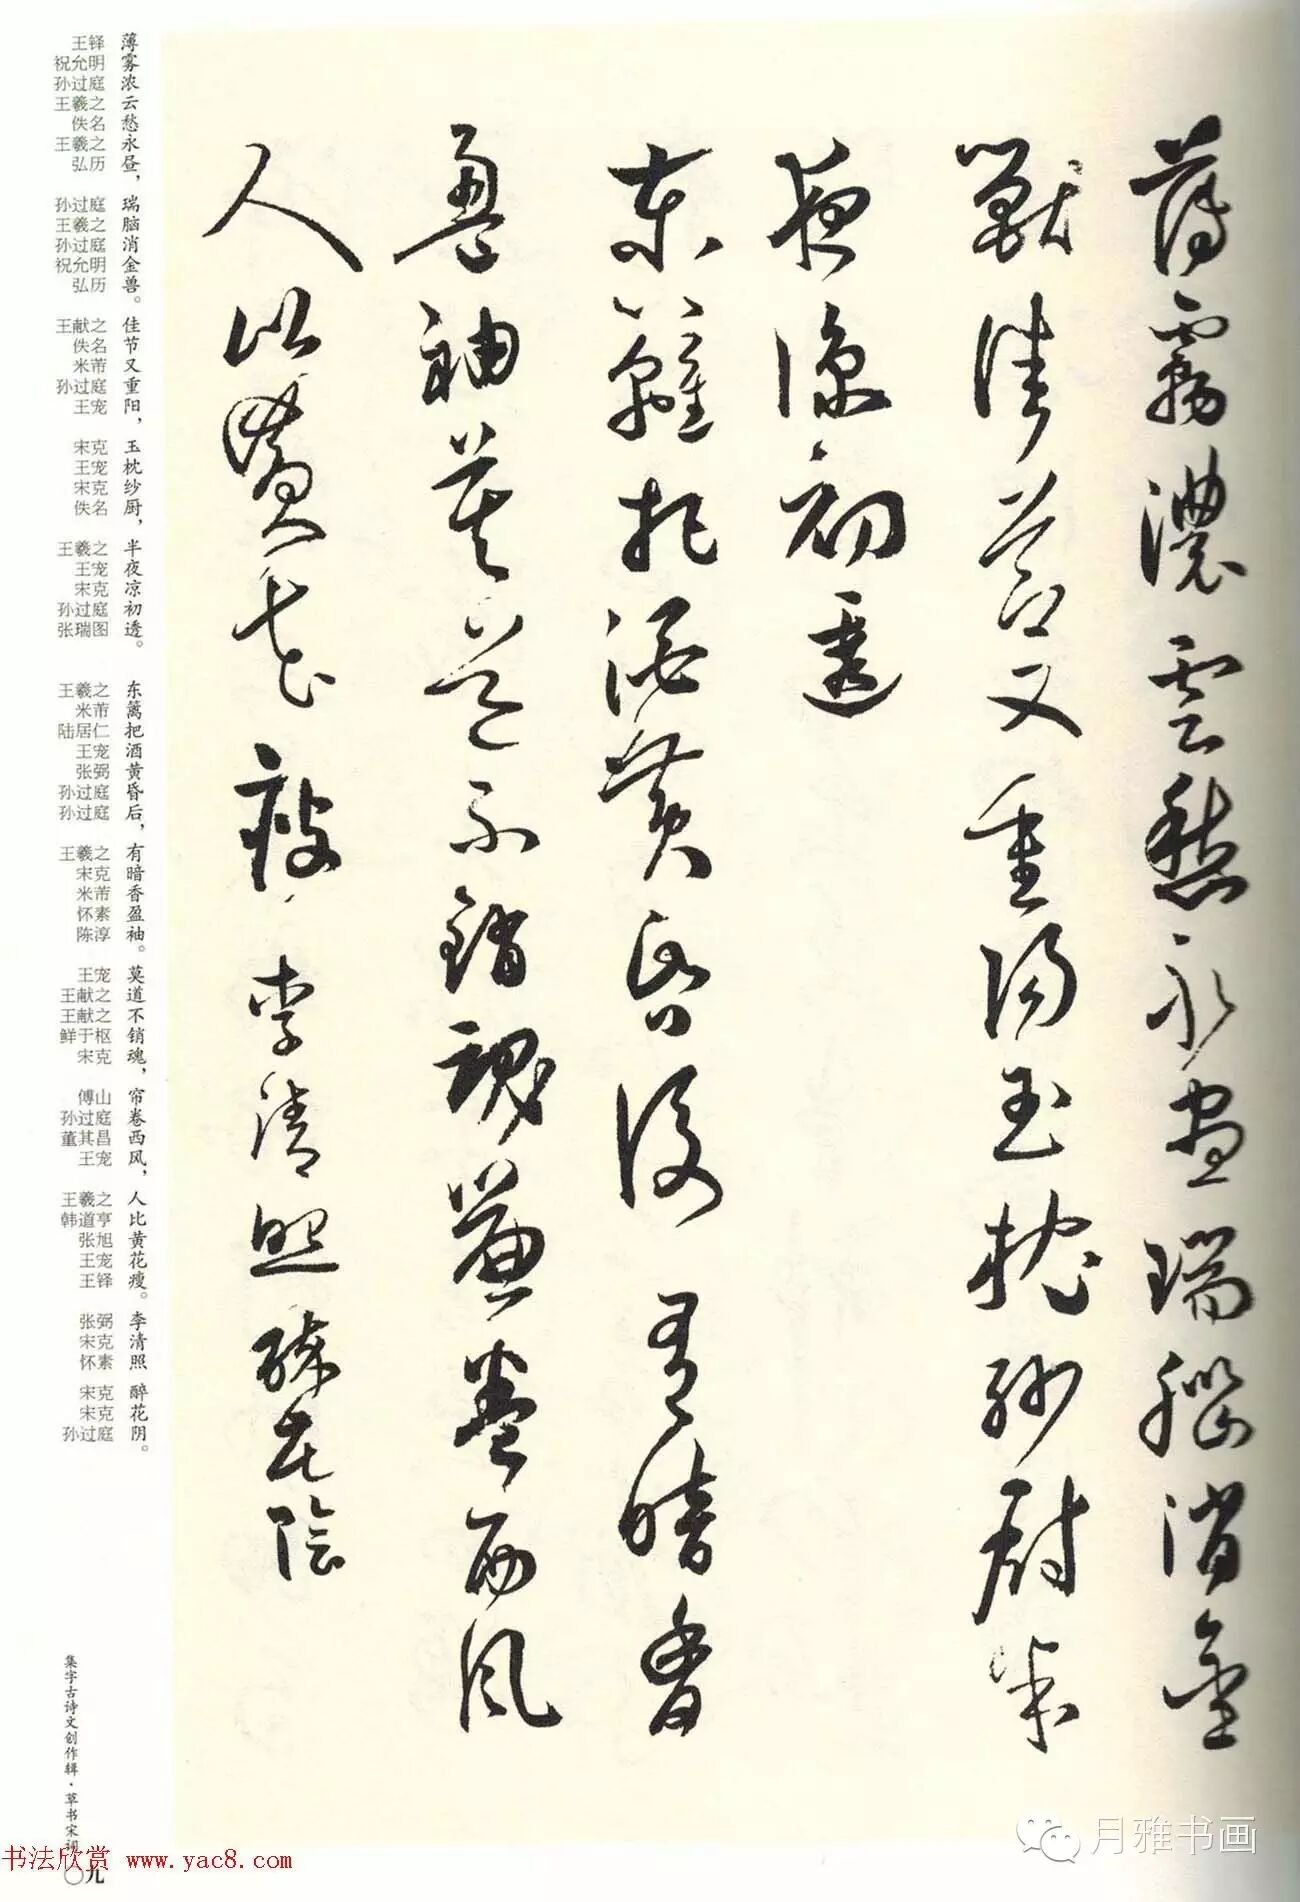 薄霧濃雲愁永晝瑞腦消金
獸佳節又重陽玉枕紗厨半
夜涼初透
東籬把酒黄昏後有暗香
盈袖莫道不銷魂簾卷西風
人比黄花瘦李清照醉花陰
薄雾浓云愁永昼，瑞脑消金兽。佳节又重阳，玉枕纱厨，半夜凉初透。东篱把酒黄昏后，有暗香盈袖。莫道不销魂，帘卷西风，人比黄花瘦。李清照 醉花阴。
王铎 祝允明 孙过庭 王羲之 佚名 王羲之 弘历 孙过庭 王羲之 孙过庭 祝允明 弘历 王献之 佚名 米芾 孙过庭 王宠 宋克 王宠 宋克 佚名 王羲之 王宠 宋克 孙过庭 张瑞图 王羲之 米芾 陆居仁 王宠 张弼 孙过庭 孙过庭 王羲之 宋克 米芾 怀素 陈淳 王宠 王献之 王献之 鲜于枢 宋克 傅山 孙过庭 董其昌 王宠 王羲之 韩道亨 张旭 王宠 王铎 张弼 宋克 怀素 宋克 宋克 孙过庭
集字古诗文创作辑·草书宋词
〇九
书法欣赏 www.yac8.com
月雅书画